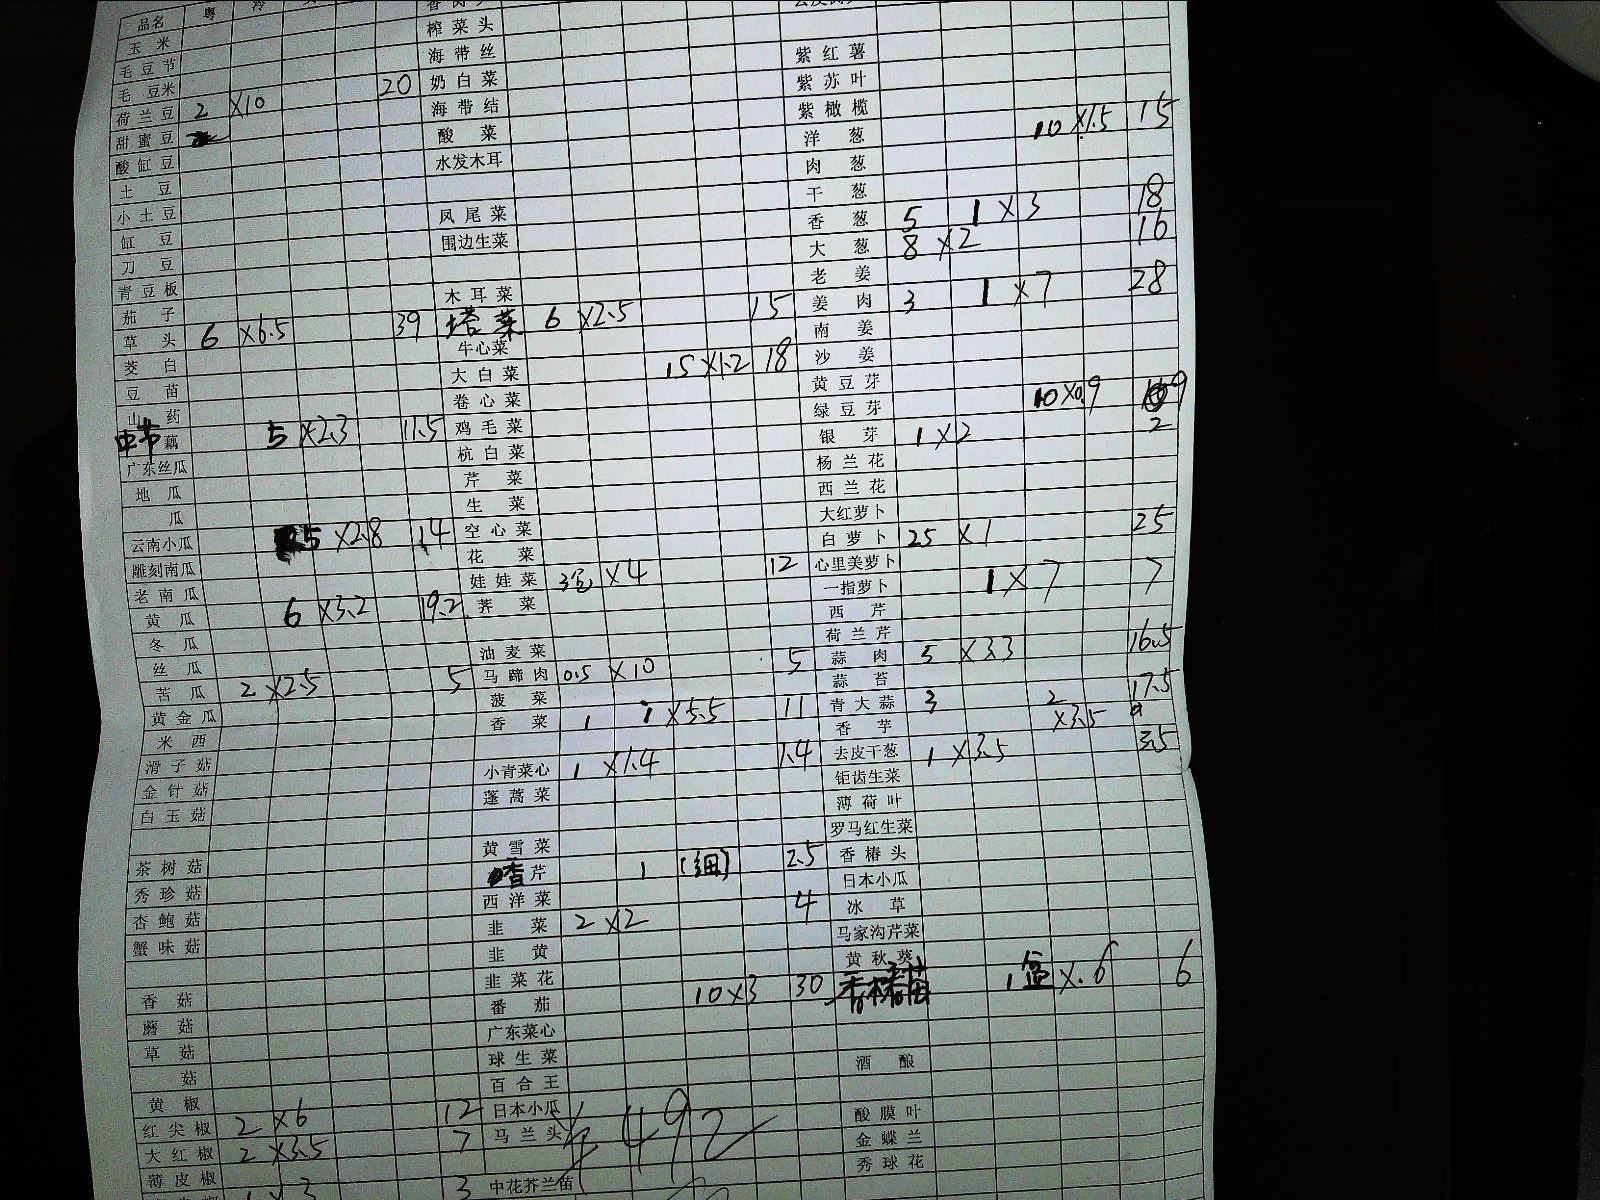 品名 粤 冷
玉米
毛豆节
毛豆米
荷兰豆 2 ×10 20
甜蜜豆
酸缸豆
土豆
小土豆
缸豆
刀豆
青豆板
茄子
草头 6 ×6.5 39
茭白
豆苗
山药
中节 藕 5 ×2.3 11.5
广东丝瓜
地瓜
瓜
云南小瓜 5 ×2.8 14
雕刻南瓜
老南瓜
黄瓜 6 ×3.2 19.2
冬瓜
丝瓜
苦瓜 2 ×2.5 5
黄金瓜
米西
滑子菇
金针菇
白玉菇
茶树菇
秀珍菇
杏鲍菇
蟹味菇
香菇
蘑菇
草菇
菇
黄椒
红尖椒 2 ×6 12
大红椒 2 ×3.5 7
薄皮椒
1 ×3 3
榨菜头
海带丝
奶白菜
海带结
酸菜
水发木耳
凤尾菜
围边生菜
木耳菜
塔菜 6 ×2.5 15
牛心菜
大白菜 15 ×1.2 18
卷心菜
鸡毛菜
杭白菜
芹菜
生菜
空心菜
花菜
娃娃菜 3包 ×4 12
荠菜
油麦菜
马蹄肉 0.5 ×10 5
菠菜
香菜 1 1 ×5.5 11
小青菜心 1 ×1.4 1.4
蓬蒿菜
黄雪菜
香芹 1 (细) 2.5
西洋菜
韭菜 2 ×2 4
韭黄
韭菜花
番茄 10 ×3 30
广东菜心
球生菜
百合王
日本小瓜
马兰头
492
中花芥兰苗
紫红薯
紫苏叶
紫橄榄
洋葱 10 ×1.5 15
肉葱
干葱
香葱 5 1 ×3 18
大葱 8 ×2 16
老姜
姜肉 3 1 ×7 28
南姜
沙姜
黄豆芽
绿豆芽 10 ×0.9 9
银芽 1 ×2 2
杨兰花
西兰花
大红萝卜
白萝卜 25 ×1 25
心里美萝卜
一指萝卜 1 ×7 7
西芹
荷兰芹
蒜肉 5 ×3.3 16.5
蒜苔
青大蒜 3 2 ×3.5 17.5
香芋
去皮干葱 1 ×3.5 3.5
钜齿生菜
薄荷叶
罗马红生菜
香椿头
日本小瓜
冰草
马家沟芹菜
黄秋葵
香椿苗 1盒 ×6 6
酒酿
酸膜叶
金蝶兰
秀球花